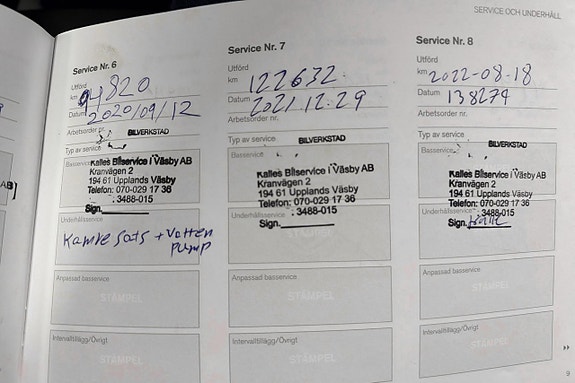 SERVICE OCH UNDERHÅLL
Service Nr. 6
Utförd
km 94820
Datum 2020/09/12
Arbetsorder nr.
BILVERKSTAD
Typ av service
Basservice
Kalles Bilservice i Väsby AB
Kranvägen 2
194 61 Upplands Väsby
Telefon: 070-029 17 36
: 3488-015
Sign.
Kamresats + Vatten
pump
Anpassad basservice
STÄMPEL
Intervalltillägg/Övrigt
Service Nr. 7
Utförd
km 122632
Datum 2021.12.29
Arbetsorder nr.
BILVERKSTAD
Typ av service
Basservice
Kalles Bilservice i Väsby AB
Kranvägen 2
194 61 Upplands Väsby
Telefon: 070-029 17 36
: 3488-015
Underhållsservice
Sign.
Anpassad basservice
STÄMPEL
Intervalltillägg/Övrigt
Service Nr. 8
Utförd
km 2022-08-18
Datum 138274
Arbetsorder nr.
BILVERKSTAD
Typ av service
Basservice
Kalles Bilservice i Väsby AB
Kranvägen 2
194 61 Upplands Väsby
Telefon: 070-029 17 36
: 3488-015
Underhållsservice
Sign.
Anpassad basservice
STÄMPEL
Intervalltillägg/Övrigt
9